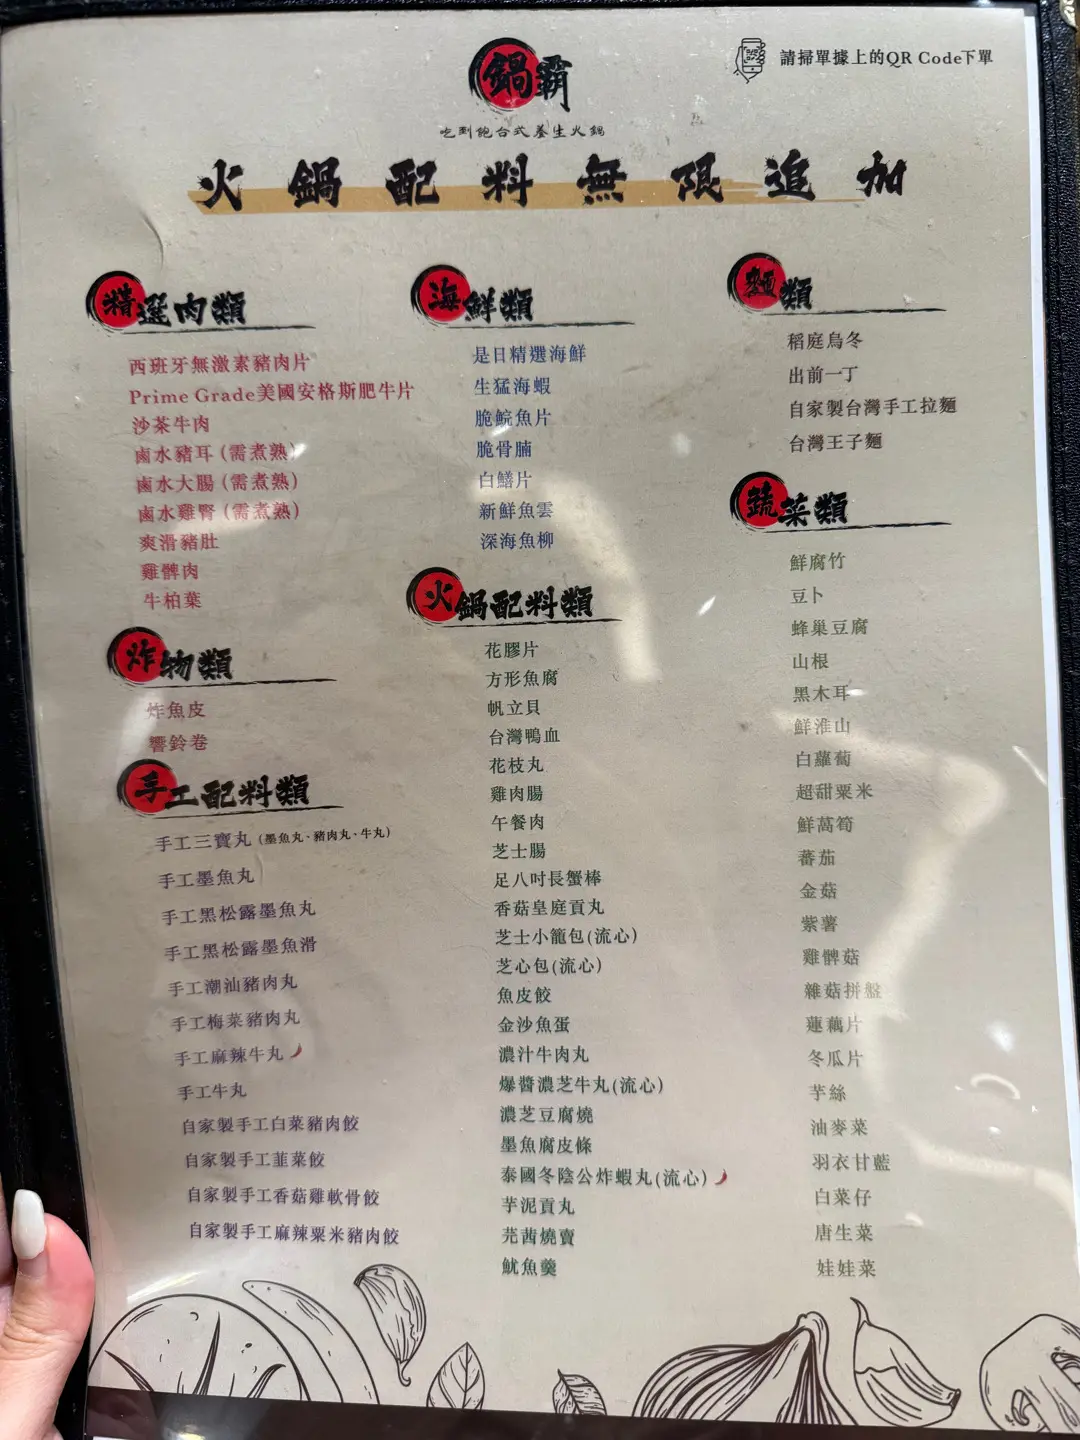 請掃單據上的QR Code下單
鍋霸
吃到飽台式養生火鍋
火鍋配料無限追加
精選肉類
西班牙無激素豬肉片
Prime Grade美國安格斯肥牛片
沙茶牛肉
鹵水豬耳(需煮熟)
鹵水大腸(需煮熟)
鹵水雞腎(需煮熟)
爽滑豬肚
雞髀肉
牛柏葉
炸物類
炸魚皮
響鈴卷
手工配料類
手工三寶丸(墨魚丸、豬肉丸、牛丸)
手工墨魚丸
手工黑松露墨魚丸
手工黑松露墨魚滑
手工潮汕豬肉丸
手工梅菜豬肉丸
手工麻辣牛丸
手工牛丸
自家製手工白菜豬肉餃
自家製手工韮菜餃
自家製手工香菇雞軟骨餃
自家製手工麻辣粟米豬肉餃
海鮮類
是日精選海鮮
生猛海蝦
脆鯇魚片
脆骨腩
白鱔片
新鮮魚雲
深海魚柳
火鍋配料類
花膠片
方形魚腐
帆立貝
台灣鴨血
花枝丸
雞肉腸
午餐肉
芝士腸
足八吋長蟹棒
香菇皇庭貢丸
芝士小籠包(流心)
芝心包(流心)
魚皮餃
金沙魚蛋
濃汁牛肉丸
爆醬濃芝牛丸(流心)
濃芝豆腐燒
墨魚腐皮條
泰國冬陰公炸蝦丸(流心)
芋泥貢丸
芫茜燒賣
魷魚羹
麵類
稻庭烏冬
出前一丁
自家製台灣手工拉麵
台灣王子麵
蔬菜類
鮮腐竹
豆卜
蜂巢豆腐
山根
黑木耳
鮮淮山
白蘿蔔
超甜粟米
鮮萵筍
蕃茄
金菇
紫薯
雞髀菇
雜菇拼盤
蓮藕片
冬瓜片
芋絲
油麥菜
羽衣甘藍
白菜仔
唐生菜
娃娃菜